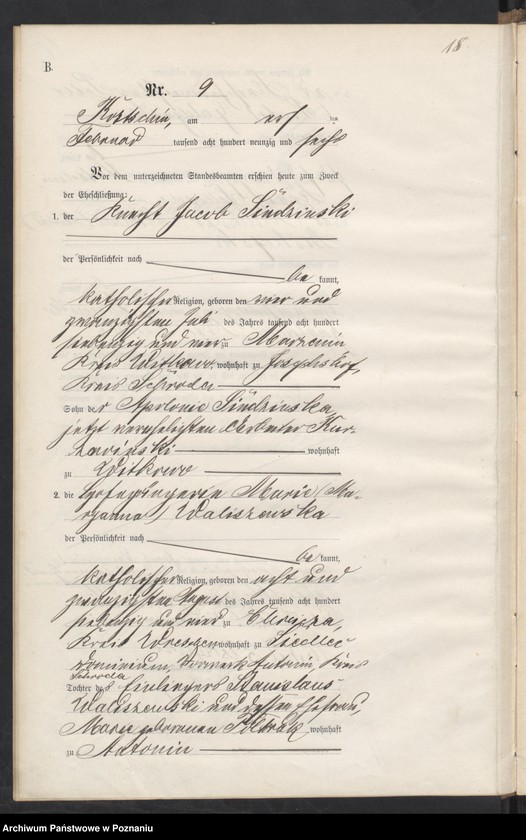 18.
B.
Nr. 9
Kostschin, am
Februar tausend acht hundert neunzig und sechs
Vor dem unterzeichneten Standesbeamten erschien heute zum Zweck
der Eheschließung:
1. der Knecht Jacob
der Persönlichkeit nach
be kannt,
katholischer Religion, geboren den vier und
zwanzigsten Juli des Jahres tausend acht hundert
siebenzig und vier zu
Kreis Witkowo, wohnhaft zu Josephshof,
Kreis Schroda
Sohn der Apolonie
jetzt verehelichten Arbeiter
wohnhaft
zu Witkowo
2. die Marie (Ma-
ryanna) Waliszewska
der Persönlichkeit nach
be kannt,
katholischer Religion, geboren den acht und
zwanzigsten August des Jahres tausend acht hundert
siebenzig und vier zu
Kreis Wreschen wohnhaft zu Siedlec
Dominium, Vorwerk Antonin, Kreis
Schroda
Tochter des Einliegers Stanislaus
Waliszewski und dessen Ehefrau,
Marie geborenen wohnhaft
zu Antonin
Archiwum Państwowe w Poznaniu